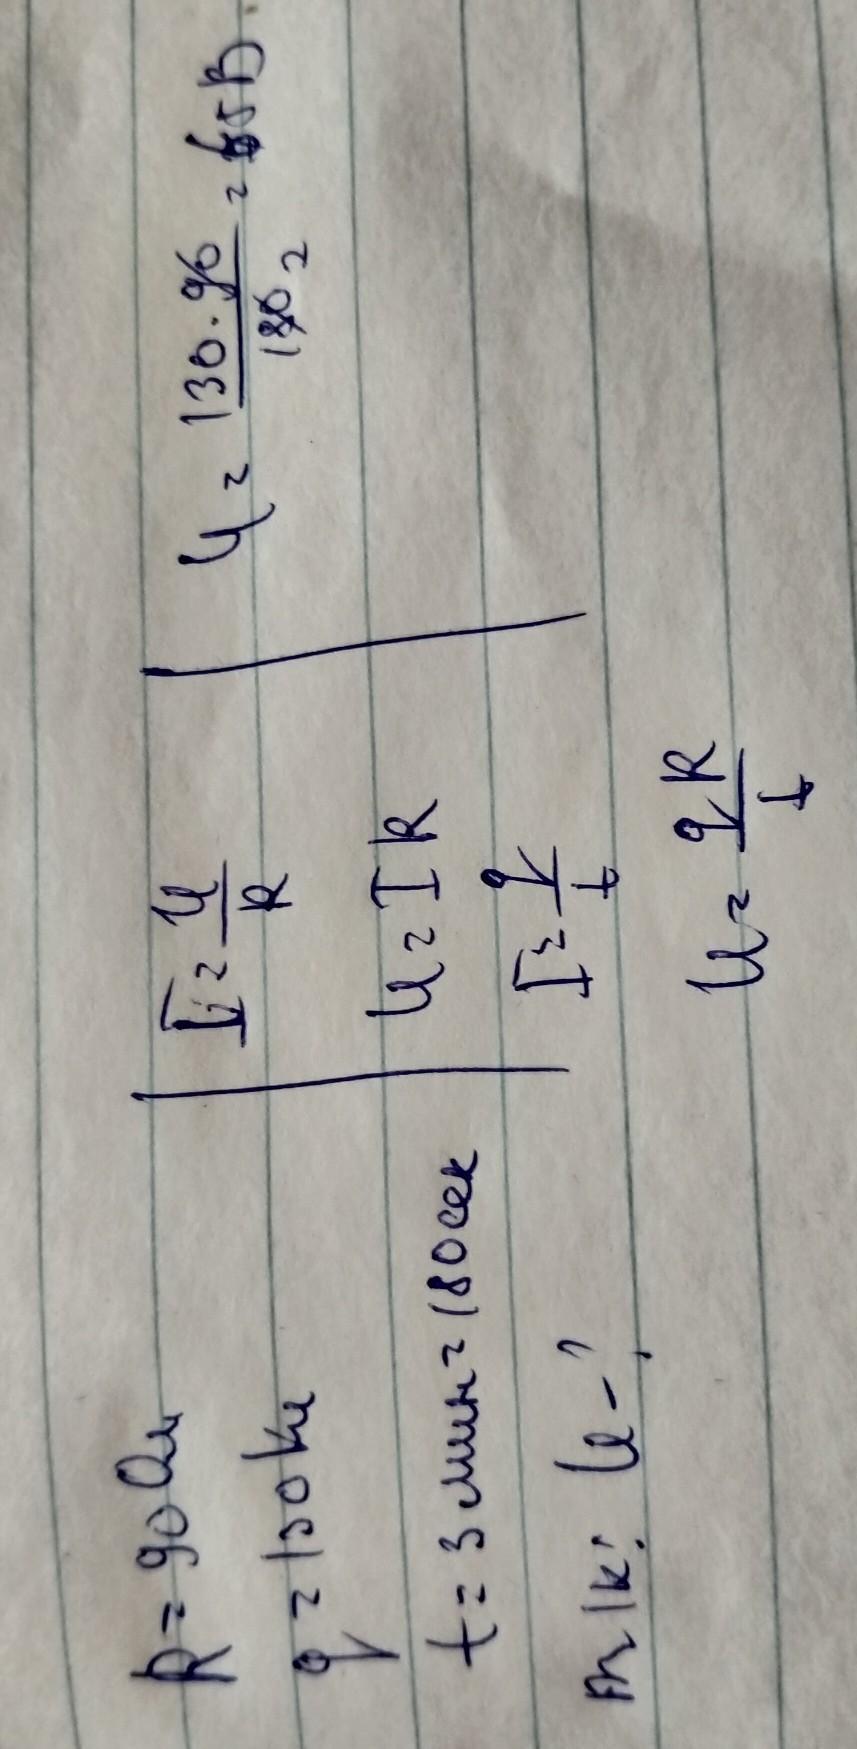 R = 90 Ом
q = 130 Кл
t = 3 мин = 180 сек
т/к: U - ?
I = U/R
U = I R
I = q/t
U = qR/t
U = 130 · 90 / 180 2 = 65 В